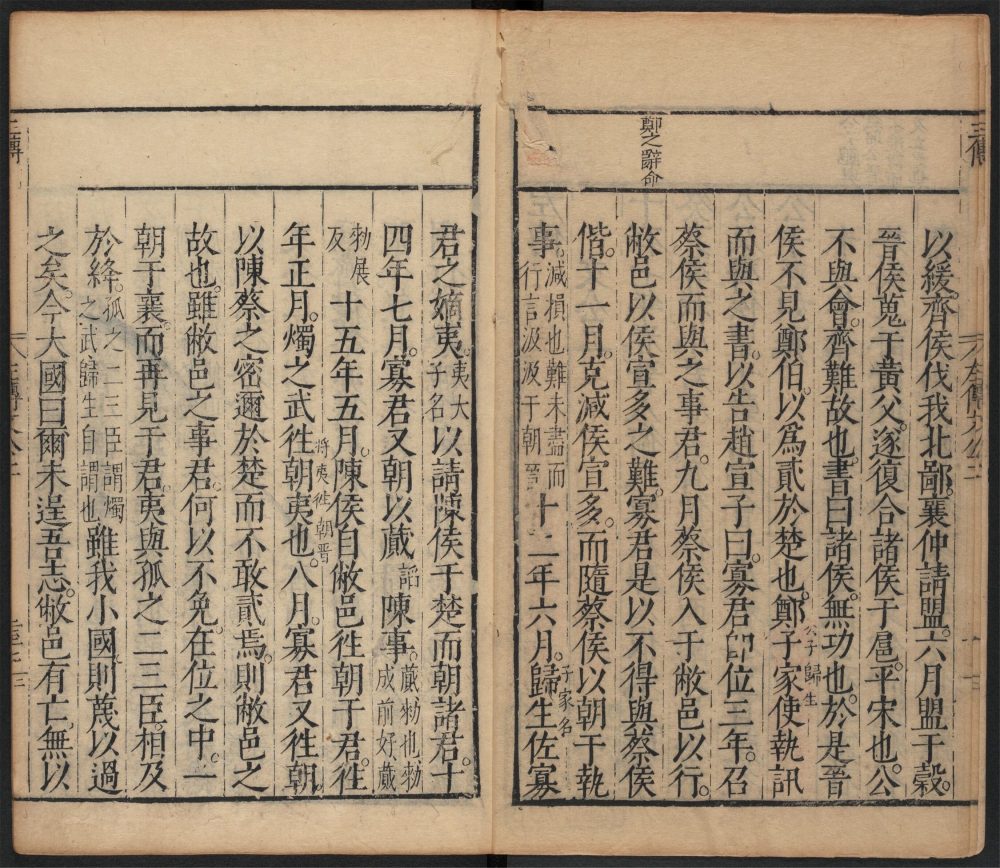 鄭之辭命
以緩齊侯伐我北鄙。襄仲請盟。六月盟于穀。
晉侯蒐于黃父。遂復合諸侯于扈。平宋也。公
不與會。齊難故也。書曰諸侯。無功也。於是晉
侯不見鄭伯。以爲貳於楚也。鄭子家公子歸生使執訊
而與之書。以告趙宣子曰。寡君卽位三年。召
蔡侯而與之事君。九月蔡侯入于敝邑以行。
敝邑以侯宣多之難。寡君是以不得與蔡侯
偕。十一月。克減侯宣多。而隨蔡侯以朝于執
事。減損也難未盡而行言汲汲于朝晉十二年六月。歸生子家名佐寡
君之嫡夷。夷大子名以請陳侯于楚而朝諸君。十
四年七月。寡君又朝以蕆諂陳事。蕆勑也勑成前好蕆
勑展反十五年五月。陳侯自敝邑徃朝于君。徃
年正月。燭之武徃朝夷將夷徃朝晉也。八月。寡君又徃朝。
以陳蔡之密邇於楚而不敢貳焉。則敝邑之
故也。雖敝邑之事君。何以不免。在位之中。一
朝于襄。而再見于君。夷與孤之二三臣。相及
於絳。孤之二三臣謂燭之武歸生自謂也雖我小國。則蔑以過
之矣。今大國曰爾未逞吾志。敝邑有亡。無以